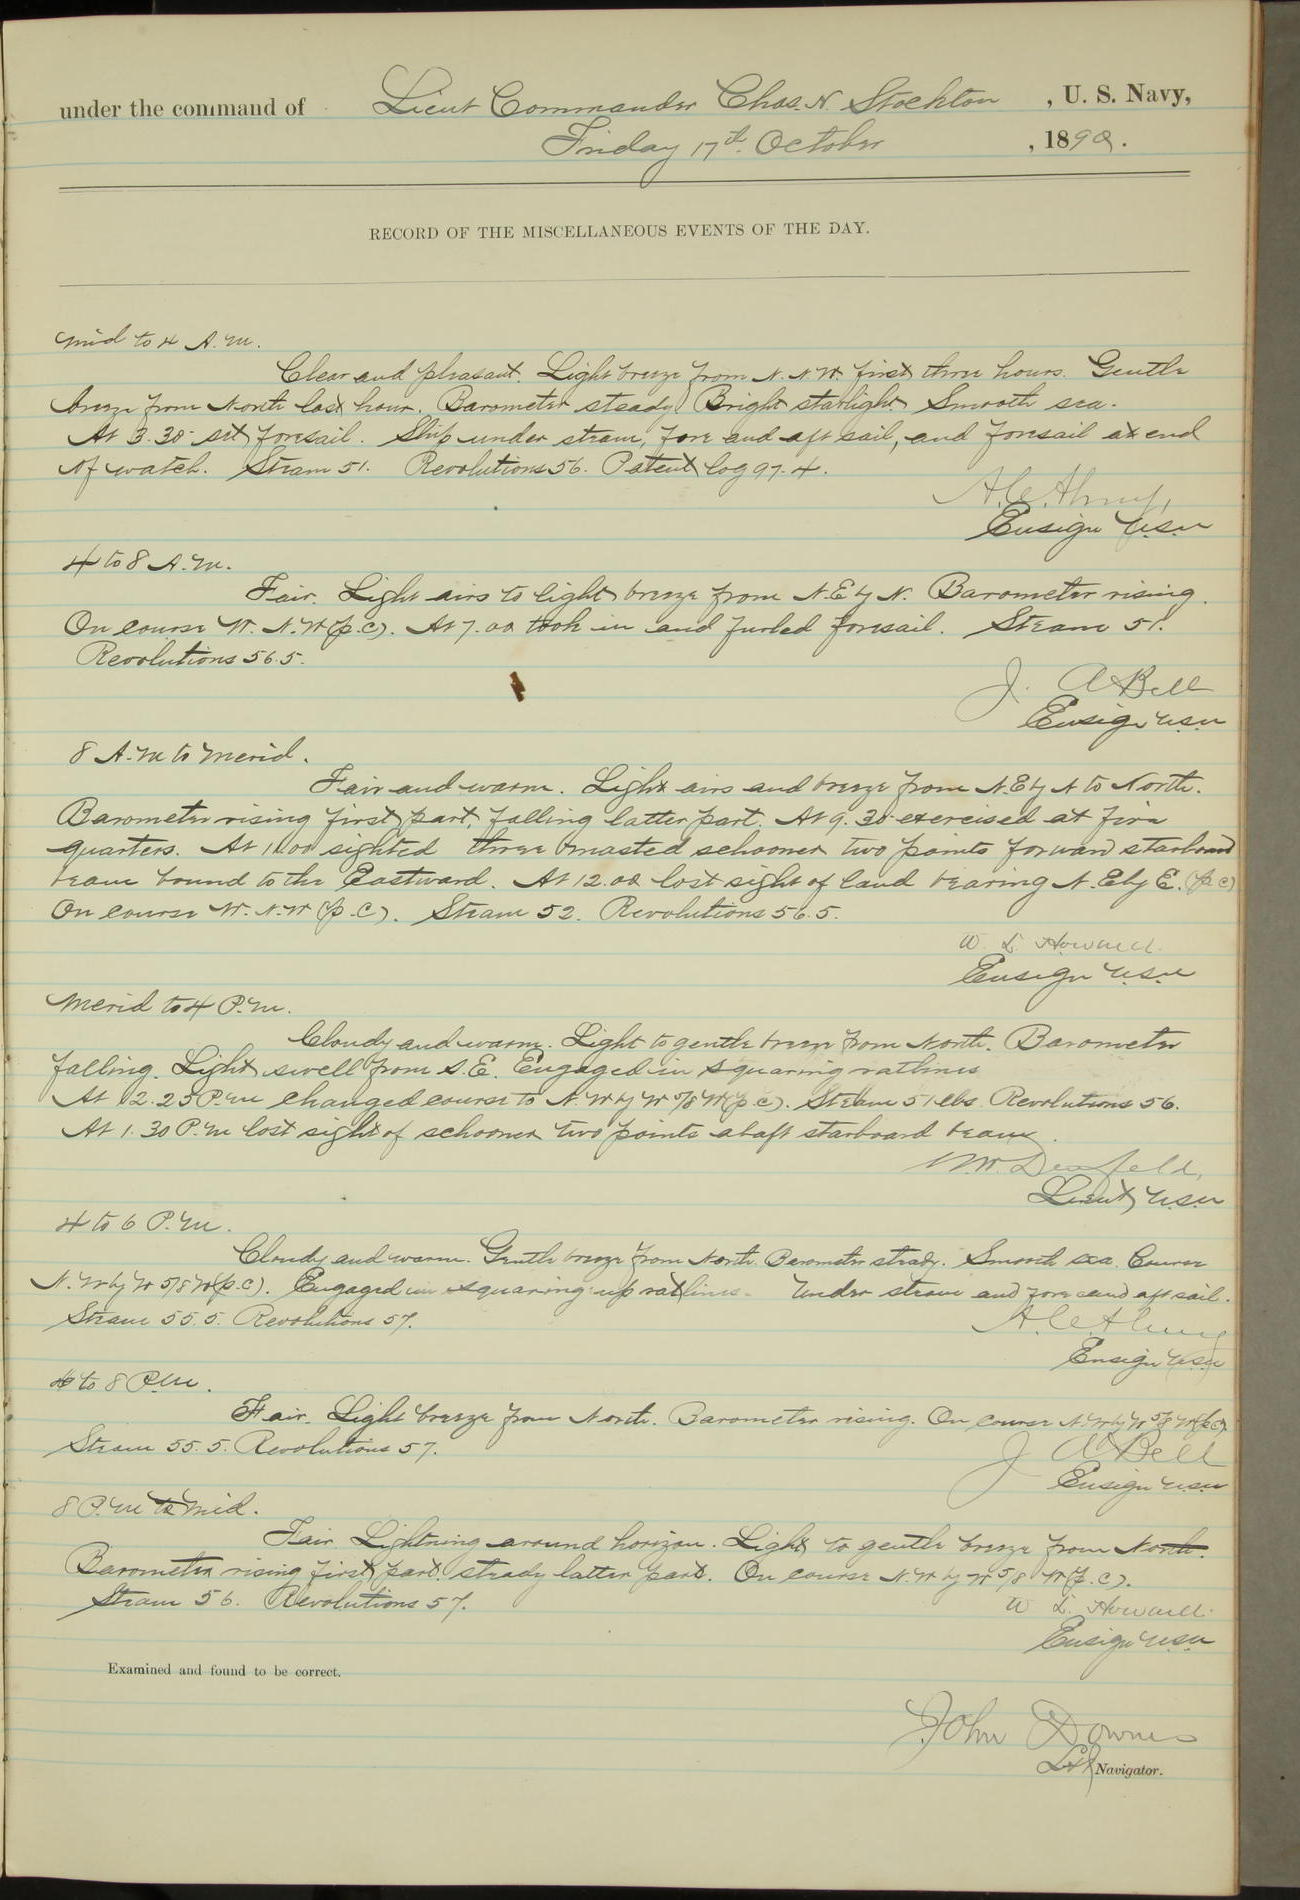 under the command of Lieut Commander Chas. H. Stockton, U. S. Navy,
Friday 17th. October, 1890.
RECORD OF THE MISCELLANEOUS EVENTS OF THE DAY.
Mid to 4 A.M.
Clear and pleasant. Light breeze from N.N.W. first three hours. Gentle
breeze from North last hour. Barometer steady. Bright starlight. Smooth sea.
At 3.30 set foresail. Ship under steam, fore and aft sail, and foresail at end
of watch. Steam 51. Revolutions 56. Patent log 97.4.
Ensign U.S.N
4 to 8 A.M.
Fair. Light airs to light breeze from N.E by N. Barometer rising.
On course W.N.W (p.c). At 7.00 took in and furled foresail. Steam 51.
Revolutions 56.5.
J. A Bell
Ensign U.S.N
8 A.M to Merid.
Fair and warm. Light airs and breeze from N.E by N to North.
Barometer rising first part, falling latter part. At 9.30 exercised at fire
quarters. At 11.00 sighted three masted schooner two points forward starboard
beam bound to the Eastward. At 12.00 lost sight of land bearing N.E by E. (p.c)
On course W.N.W (p.c). Steam 52. Revolutions 56.5.
W. L. Howard.
Ensign U.S.N
Merid to 4 P.M.
Cloudy and warm. Light to gentle breeze from North. Barometer
falling. Light swell from S.E. Engaged in squaring ratlines
At 12.25 P.M changed course to N.W by W 5/8 W (p.c). Steam 51 lbs Revolutions 56.
At 1.30 P.M lost sight of schooner two points abaft starboard beam.
Lieut, U.S.N
4 to 6 P.M.
Cloudy and warm. Gentle breeze from North. Barometer steady. Smooth sea. Course
N.W by W 5/8 W (p.c). Engaged in squaring up ratlines. Under steam and fore and aft sail.
Steam 55.5. Revolutions 57.
Ensign U.S.N
6 to 8 P.M.
Fair. Light breeze from North. Barometer rising. On course N.W by W 5/8 W (p.c).
Steam 55.5. Revolutions 57.
J A Bell
Ensign U.S.N
8 P.M to Mid.
Fair. Lightning around horizon. Light to gentle breeze from North.
Barometer rising first part. steady latter part. On course N.W by W 5/8 W (p.c).
Steam 56. Revolutions 57.
W L. Howard.
Ensign U.S.N
Examined and found to be correct.
John Downes
Lt & Navigator.